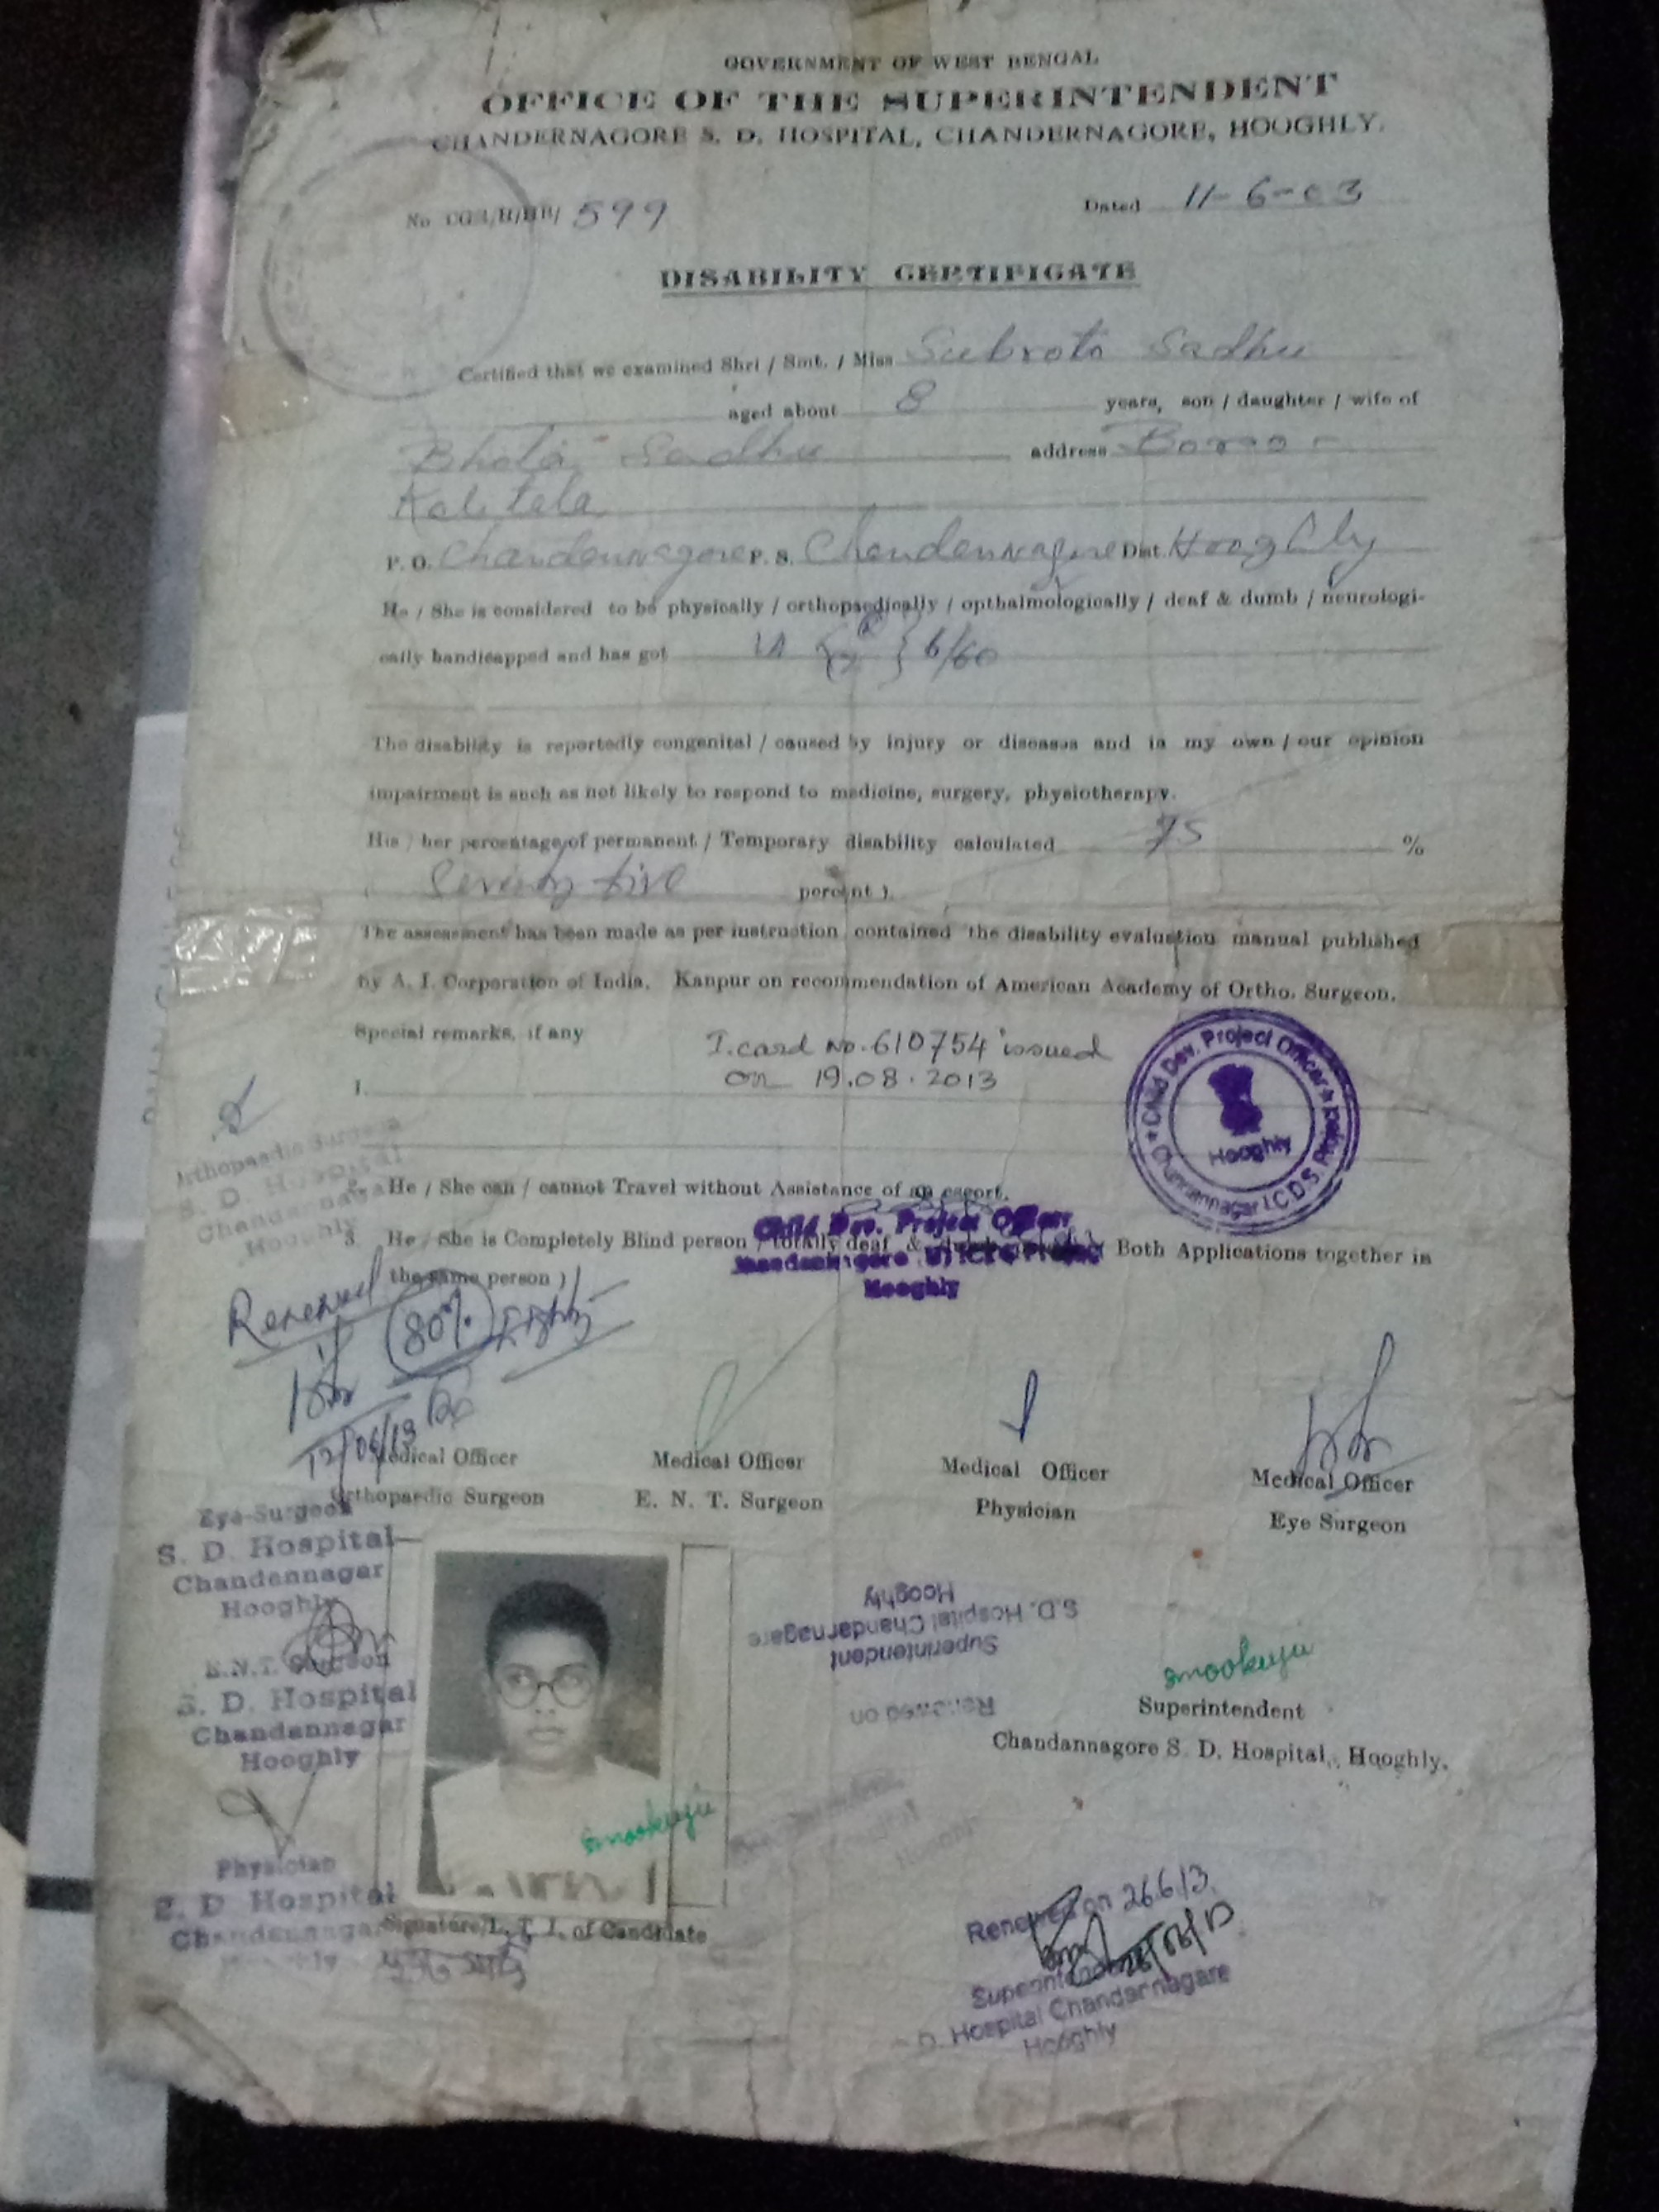 GOVERNMENT OF WEST BENGAL
OFFICE OF THE SUPERINTENDENT
CHANDERNAGORE S. D. HOSPITAL, CHANDERNAGORE, HOOGHLY.
No CGS/H/HB/ 599
Dated 11-6-03
DISABILITY CERTIFICATE
Certified that we examined Shri / Smt. / Miss Subrota Sadhu
aged about 8 years, son / daughter / wife of
Bhola Sadhu address
Kalitala
P. O. Chandennagore P. S. Chandennagore Dist. Hooghly
He / She is considered to be physically / orthopaedically / opthalmologically / deaf & dumb / neurologi-
cally handicapped and has got 6/60
The disability is reportedly congenital / caused by injury or diseases and in my own / our opinion
impairment is such as not likely to respond to medicine, surgery, physiotherapy.
His / her percentage of permanent / Temporary disability calculated 75 %
( Seventy five percent ).
The assessment has been made as per instruction contained the disability evaluation manual published
by A. I. Corporation of India. Kanpur on recommendation of American Academy of Ortho. Surgeon.
Special remarks, if any
I. card No. 610754 issued
on 19.08.2013
1.
Child Dev. Project Officer
Chandannagar I.C.D.S. Project
Hooghly
Orthopaedic Surgeon
S. D. Hospital
Chandannagar
Hooghly
He / She can / cannot Travel without Assistance of an escort.
3. He / She is Completely Blind person / totally deaf & Both Applications together in
the same person )
Child Dev. Project Officer
Hooghly
Renewed
80% Eighty
12/06/13
Medical Officer
Orthopaedic Surgeon
Medical Officer
E. N. T. Surgeon
Medical Officer
Physician
Medical Officer
Eye Surgeon
Eye-Surgeon
S. D. Hospital
Chandannagar
Hooghly
E.N.T. Surgeon
S. D. Hospital
Chandannagar
Hooghly
Physician
S. D. Hospital
Chandannagar
Signature/L. T. I. of Candidate
Renewed on
Superintendent
S.D. Hospital Chandarnagare
Hooghly
Superintendent
Chandannagore S. D. Hospital, Hooghly.
Renewed on 26.6.13.
Superintendent
D. Hospital Chandarnagare
Hooghly